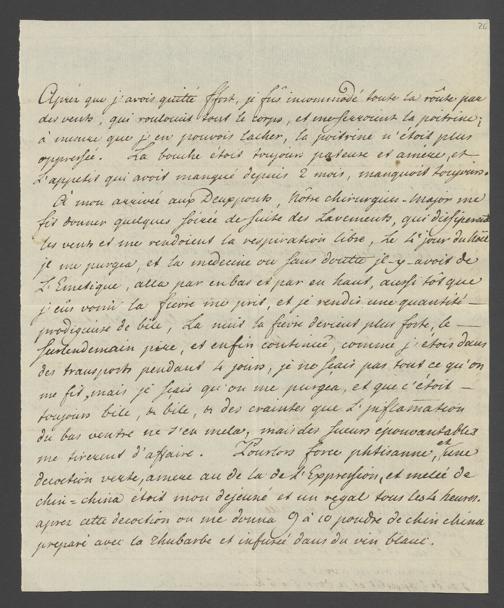 26
Après que j'avois quitté ffort, je fûs incommodé toute la route par
des vents, qui rouloient tout le corps, et me serroient la poitrine;
à mesure que j'en pouvois lacher, la poitrine n'étoit plus
oppressée. La bouche étoit toujours pateuse et amère, et
L'appetit qui avoit manqué depuis 2 mois, manquoit toujours.
A mon arrivée aux Deuxponts, Nôtre chirurgien-Major me
fit donner quelques soirée de suite des Lavements, qui dissiperent
les vents et me rendoient la respiration libre, Le 4e jour du
je me purgea, et la medecine ou sans doutte il-y-avoit de
L'Emetique, alla par en bas et par en haut, aussi tôt que
j'eus vomi la fievre me prit, et je rendis une quantité
prodigieuse de bile, La nuit la fievre devient plus forte, le
surlendemain pire, et enfin continue, comme j'etois dans
des transports pendant 4 jours, je ne sçais pas tout ce qu'on
me fit, mais je sçais qu'on me purgea, et que c'étoit
toujours bile, & bile, & des craintes que L'inflamation
du bas ventre ne s'en mela, mais des sueurs epouvantables
me tirerent d'affaire. Pourlors force phtisanne, et une
decoction verte, amere au de la de L'Expression, et melée de
chin=china étoit mon dejeuné et un regal tous les 4 heures.
apres cette decoction on me donna 9 à 10 poudre de chin china
preparé avec la Rhubarbe et infusée dans du vin blanc.